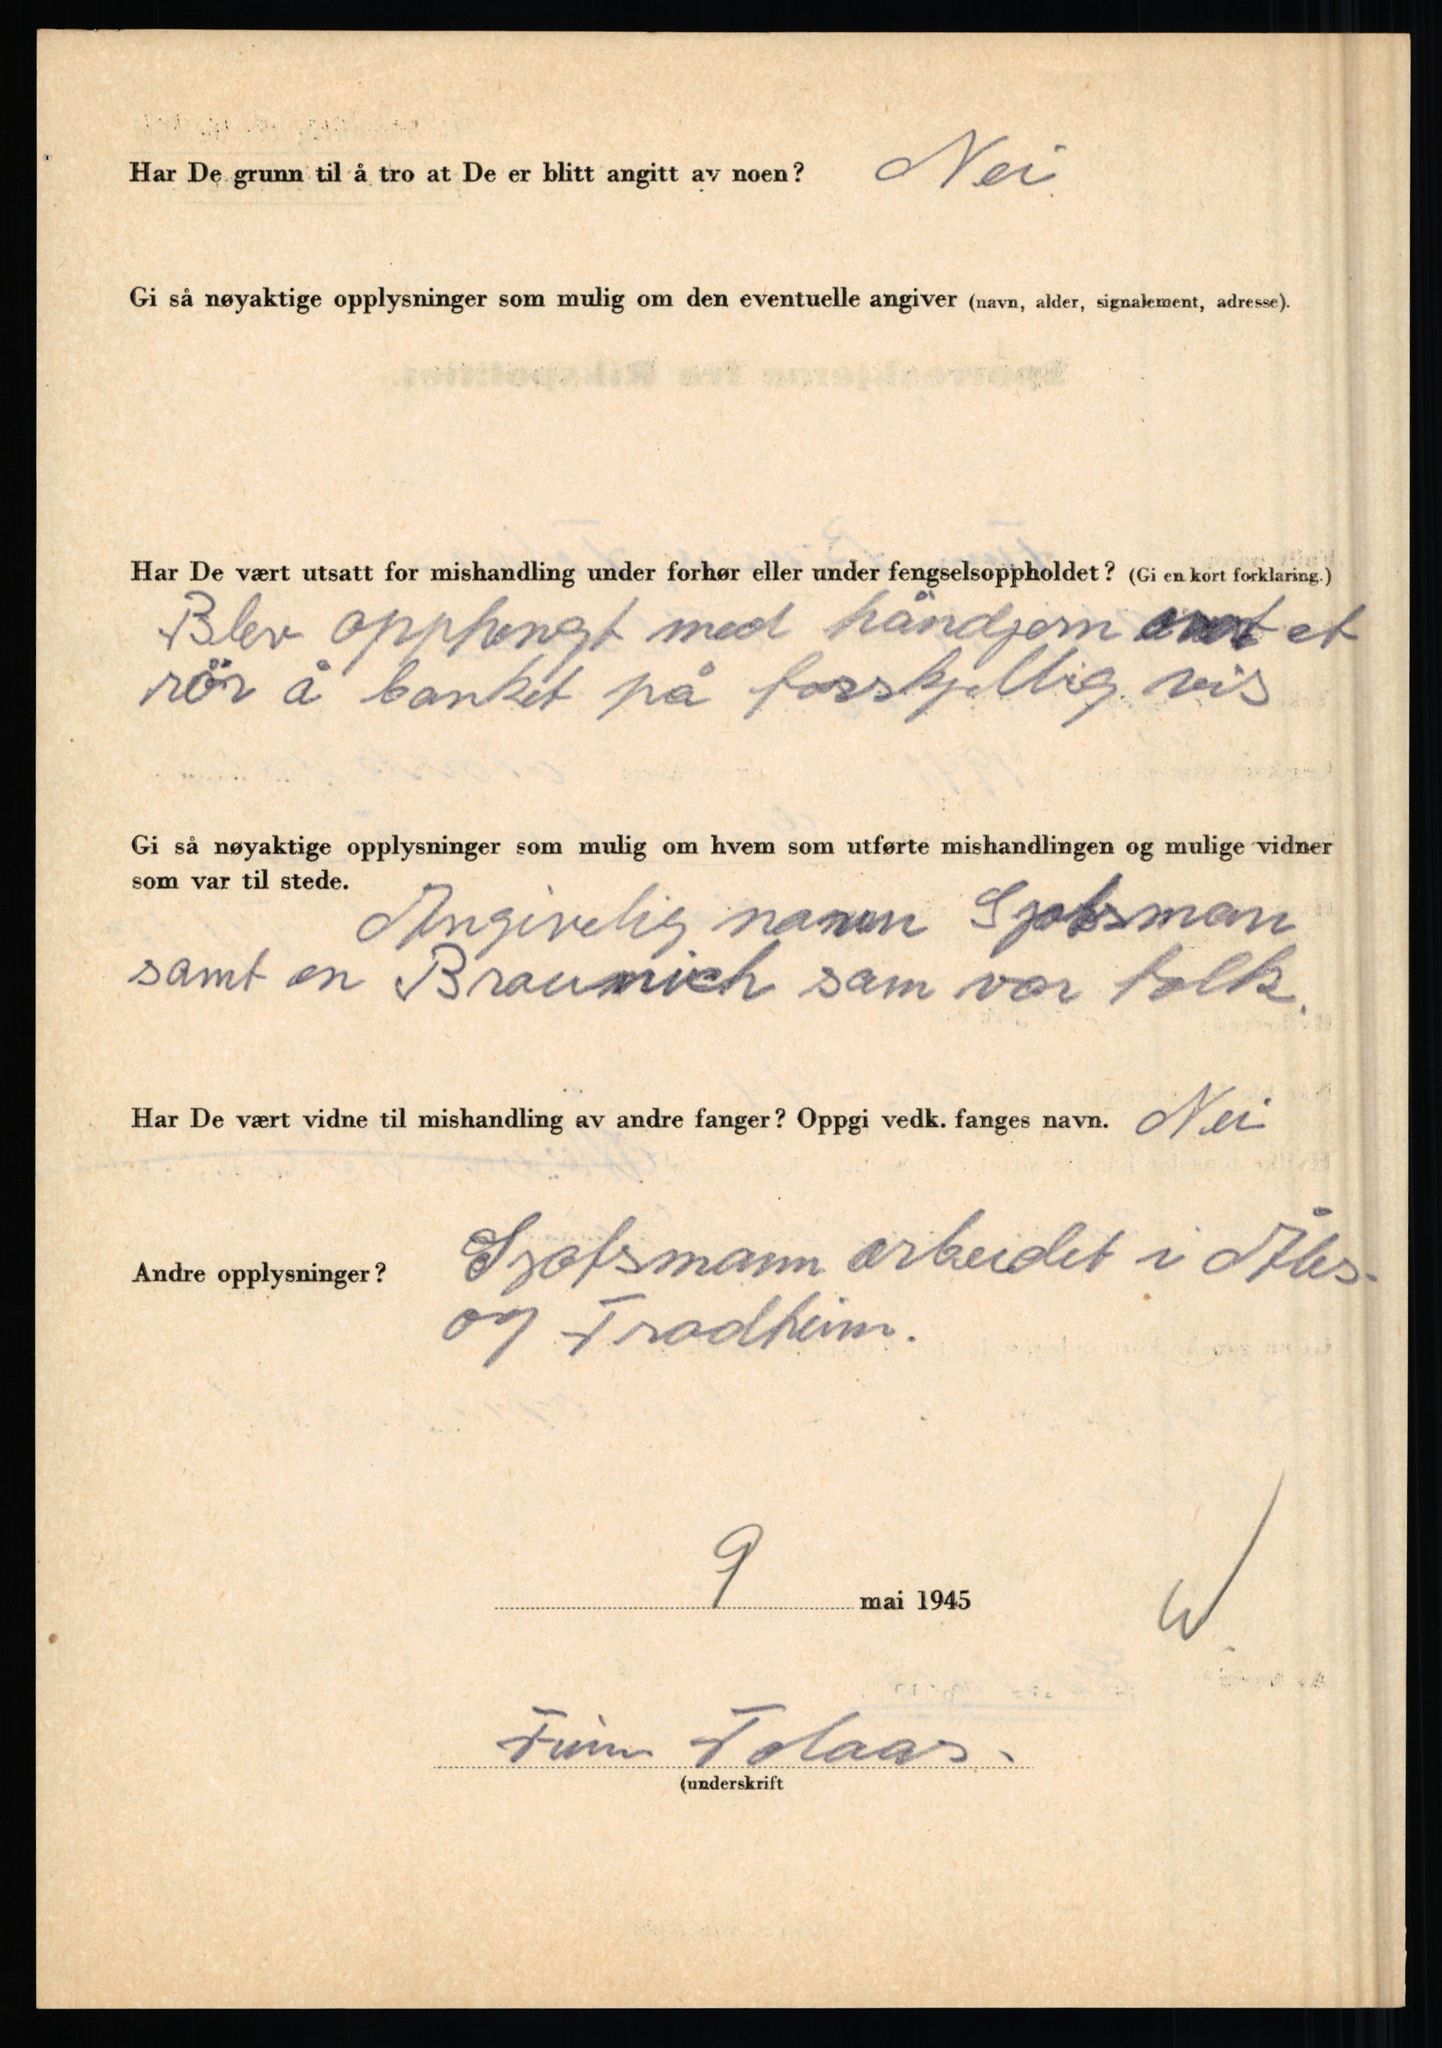 Har De grunn til å tro at De er blitt angitt av noen? Nei
Gi så nøyaktige opplysninger som mulig om den eventuelle angiver (navn, alder, signalement, adresse).
Har De vært utsatt for mishandling under forhør eller under fengselsoppholdet? (Gi en kort forklaring.)
Blev opphengt med håndjern et
rör å banket på forskjellig vis
Gi så nøyaktige opplysninger som mulig om hvem som utførte mishandlingen og mulige vidner
som var til stede.
Angivelig navn
samt en Braunich som var tolk.
Har De vært vidne til mishandling av andre fanger? Oppgi vedk. fanges navn. Nei
Andre opplysninger? arbeidet i Åles.
og Trodheim.
9 mai 1945
W.
Finn Tolaas.
(underskrift